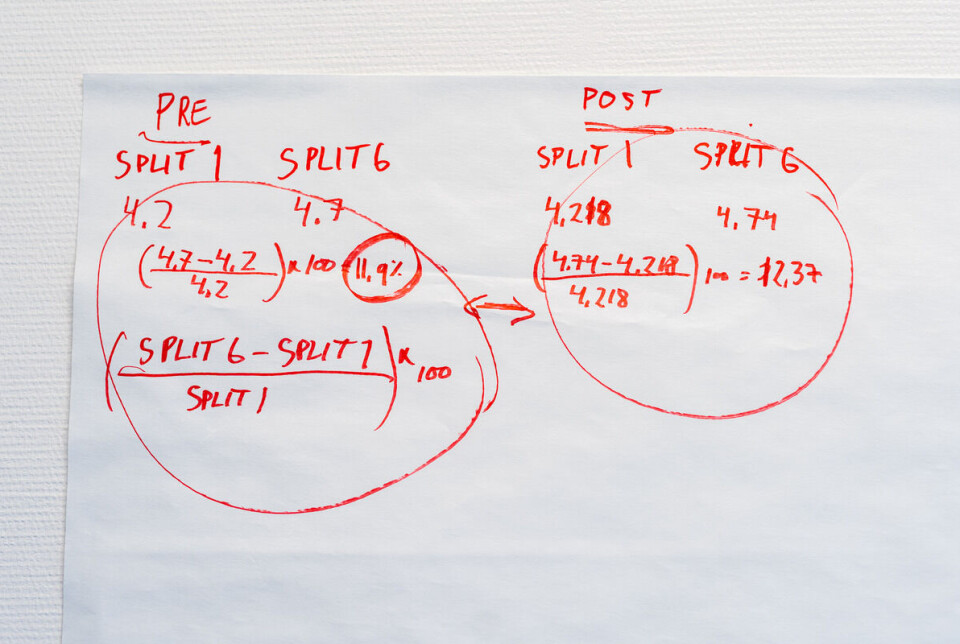 PRE
SPLIT 1 SPLIT 6
4.2 4.7
(4.7-4.2 / 4.2) x 100 = 11,9%
(SPLIT 6 - SPLIT 1 / SPLIT 1) x 100
POST
SPLIT 1 SPLIT 6
4.218 4.74
(4.74-4.218 / 4.218) 100 = 12,37